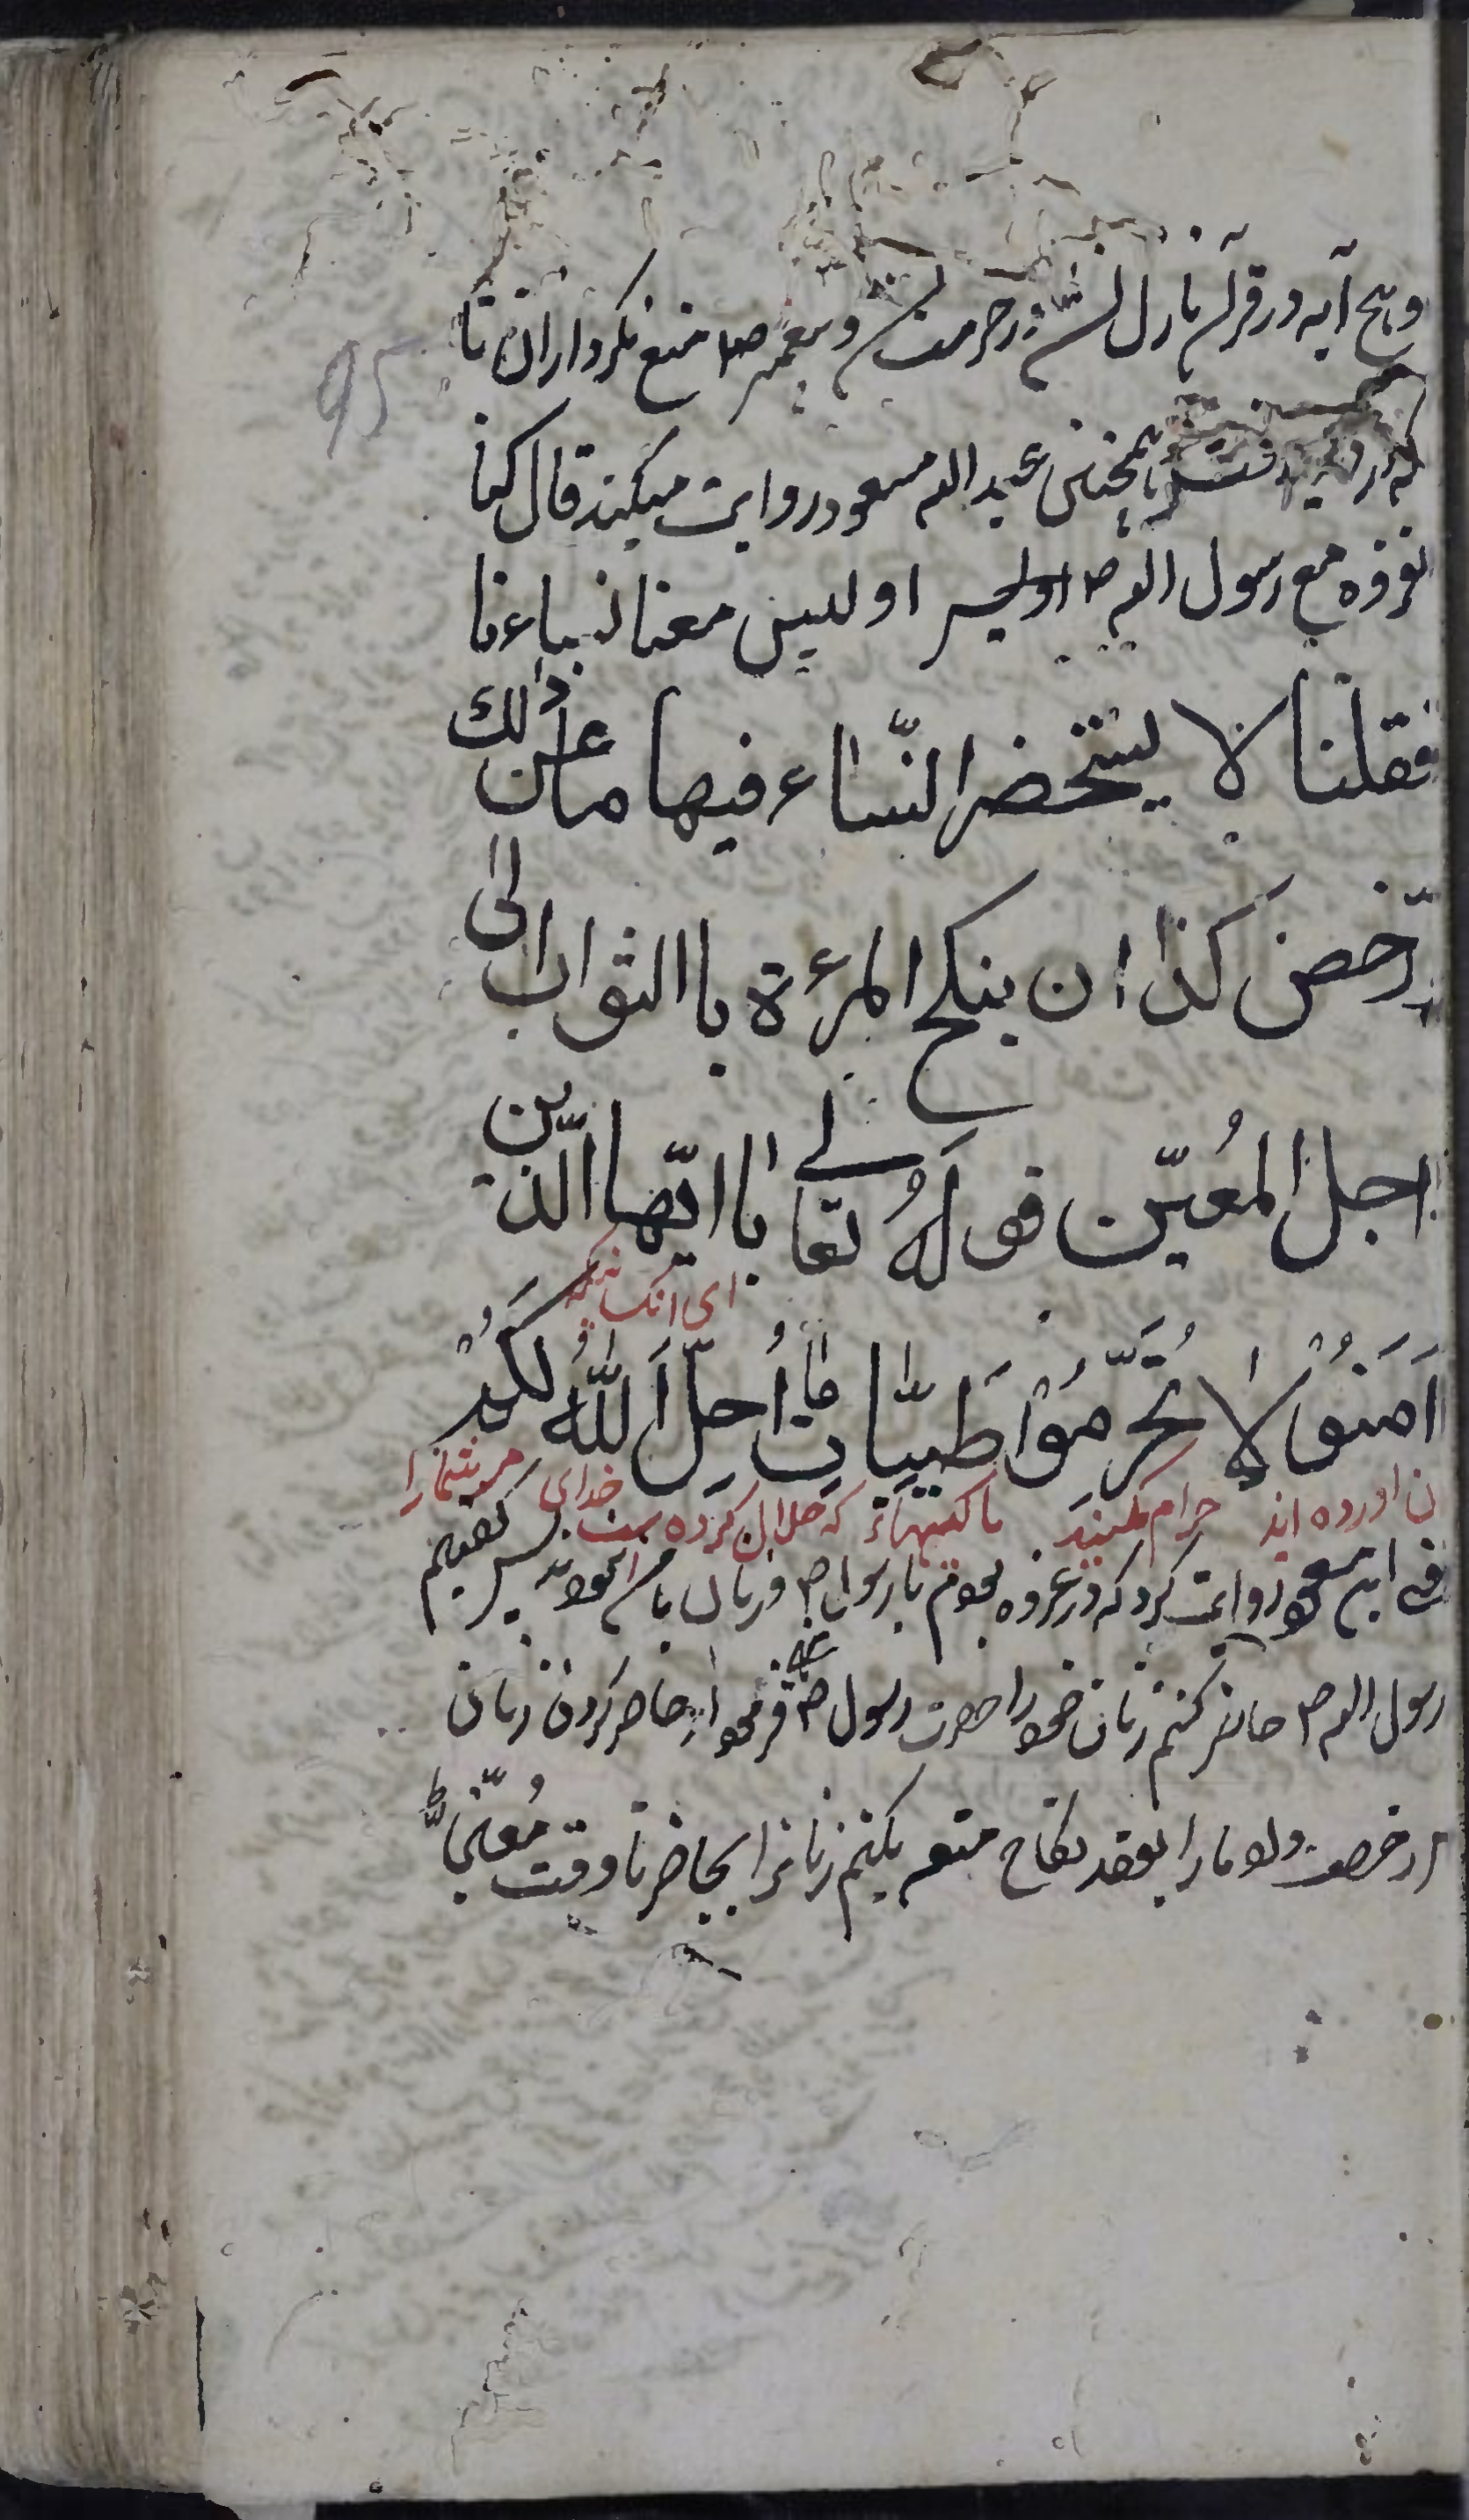 وهیچ آیه در قرآن نازل نشد در حرمت آن و پیغمبر ص منع نکرد از آن تا
از دنیا رفت همچنین عبد الله مسعود روایت میکند قال کنا
نغزوه مع رسول الله ص او لیس معنا نساءنا
فقلنا لا یستحضر النّساء فیها ما عن ذلک
رخّص کذا ان ینکح المرءة باالثواب الی
اجل المُعیّن قولهُ تعالی یا ایّها الّذین
ای آنکسانیکه
آمَنُوْا لا تُحَرِّمُوْا طَیّبات ما اُحِلّ اَللّٰهُ لَکُمْ
ایمان اورده اید حرام مکنید پاکیهائی که حلال کرده است خدای مر شما را
ابن مسعود روایت کرد که در غزوه بودیم با رسول ص و زنان با ما نبودند پس گفتیم
رسول الله ص حاضر کنیم زنان خود را حضرت رسول ص فرمود از حاضر کردن زنان
و رخصت داد ما را بعقد نکاح متعه بکنیم زنانرا بجامه تا وقت مُعیّن
95